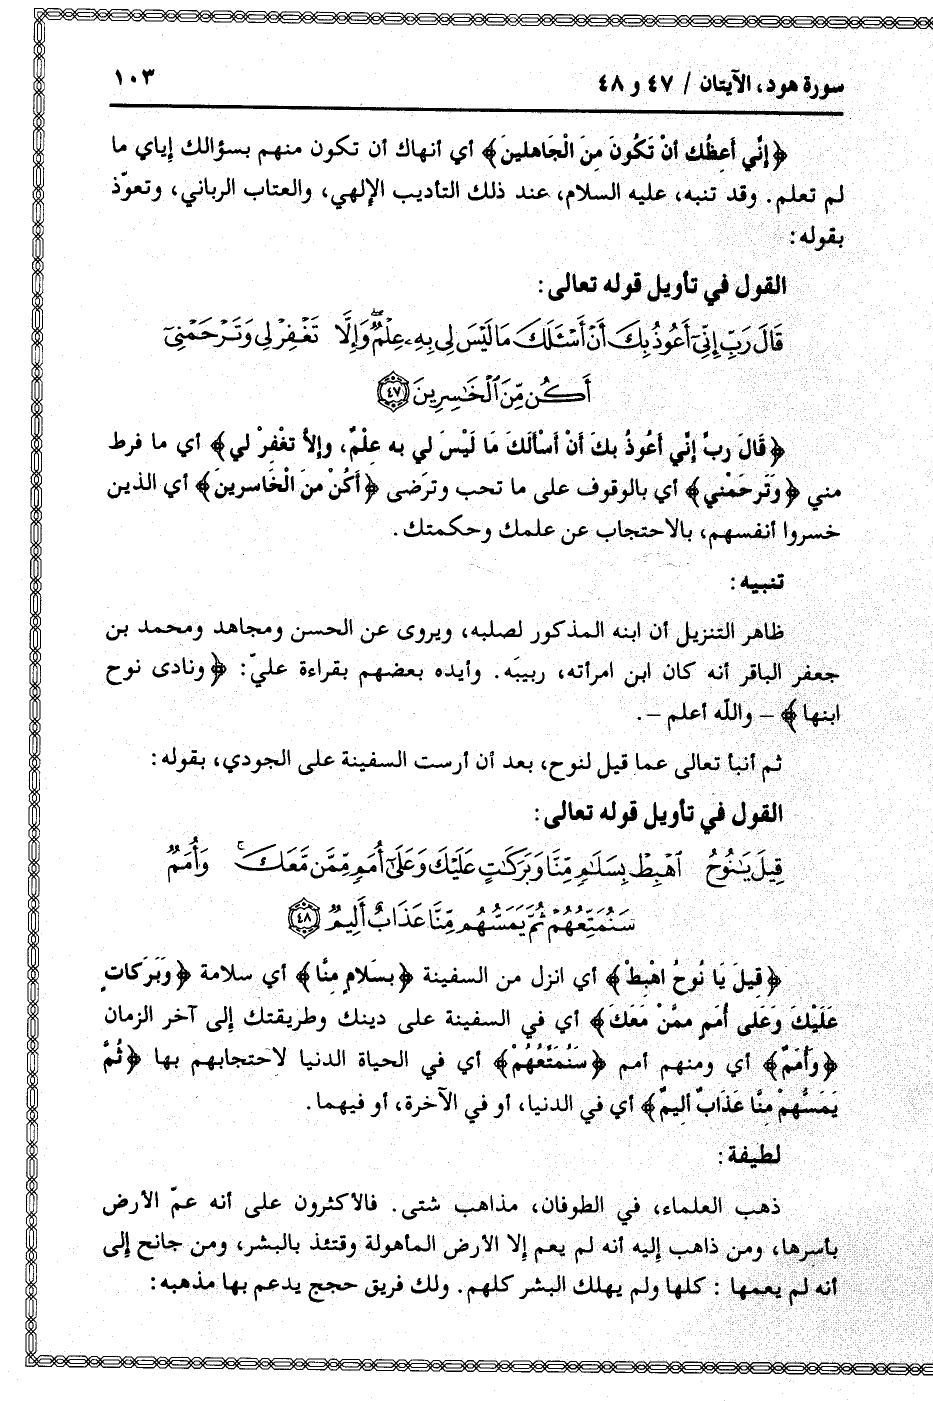 سورة هود، الآيتان / ٤٧ و ٤٨
١٠٣
﴿إنِّي أَعِظُك أنْ تَكُونَ مِنَ الْجَاهلينَ﴾ أي أنهاك أن تكون منهم بسؤالك إياي ما
لم تعلم. وقد تنبه، عليه السلام، عند ذلك التأديب الإلهي، والعتاب الرباني، وتعوّذ
بقوله:
القول في تأويل قوله تعالى:
قَالَ رَبِّ إِنِّىٓ أَعُوذُ بِكَ أَنْ أَسْـَٔلَكَ مَا لَيْسَ لِى بِهِۦ عِلْمٌۖ وَإِلَّا تَغْفِرْ لِى وَتَرْحَمْنِىٓ
أَكُن مِّنَ ٱلْخَٰسِرِينَ ٤٧
﴿قَالَ ربِّ إنِّي أعُوذُ بكَ أَنْ أسْألَكَ مَا لَيْسَ لي به عِلْمٌ، وإلاَّ تغْفِرْ لي﴾ أي ما فرط
مني ﴿وَتَرحَمْني﴾ أي بالوقوف على ما تحب وترَضى ﴿أكُنْ منَ الْخَاسرينَ﴾ أي الذين
خسروا أنفسهم، بالاحتجاب عن علمك وحكمتك.
تنبيه:
ظاهر التنزيل أن ابنه المذكور لصلبه، ويروى عن الحسن ومجاهد ومحمد بن
جعفر الباقر أنه كان ابن امرأته، ربيبَه. وأيده بعضهم بقراءة عليّ: ﴿ونادى نوح
ابنها﴾ – والله أعلم –.
ثم أنبأ تعالى عما قيل لنوح، بعد أن أرست السفينة على الجودي، بقوله:
القول في تأويل قوله تعالى:
قِيلَ يَٰنُوحُ ٱهْبِطْ بِسَلَٰمٍ مِّنَّا وَبَرَكَٰتٍ عَلَيْكَ وَعَلَىٰٓ أُمَمٍ مِّمَّن مَّعَكَۚ وَأُمَمٌ
سَنُمَتِّعُهُمْ ثُمَّ يَمَسُّهُم مِّنَّا عَذَابٌ أَلِيمٌ ٤٨
﴿قِيلَ يَا نُوحُ اهْبِطْ﴾ أي انزل من السفينة ﴿بسَلامٍ منَّا﴾ أي سلامة ﴿وَبَرَكاتٍ
عَلَيْكَ وَعَلى أُمَمٍ ممَّنْ مَعَكَ﴾ أي في السفينة على دينك وطريقتك إلى آخر الزمان
﴿وأُمَمٌ﴾ أي ومنهم أمم ﴿سَنُمَتِّعُهُمْ﴾ أي في الحياة الدنيا لاحتجابهم بها ﴿ثُمَّ
يَمَسُّهمْ مِنَّا عَذَابٌ أليمٌ﴾ أي في الدنيا، أو في الآخرة، أو فيهما.
لطيفة:
ذهب العلماء، في الطوفان، مذاهب شتى. فالأكثرون على أنه عمّ الأرض
بأسرها، ومن ذاهب إليه أنه لم يعم إلا الأرض المأهولة وقتئذ بالبشر، ومن جانح إلى
أنه لم يعمها : كلها ولم يهلك البشر كلهم. ولك فريق حجج يدعم بها مذهبه: